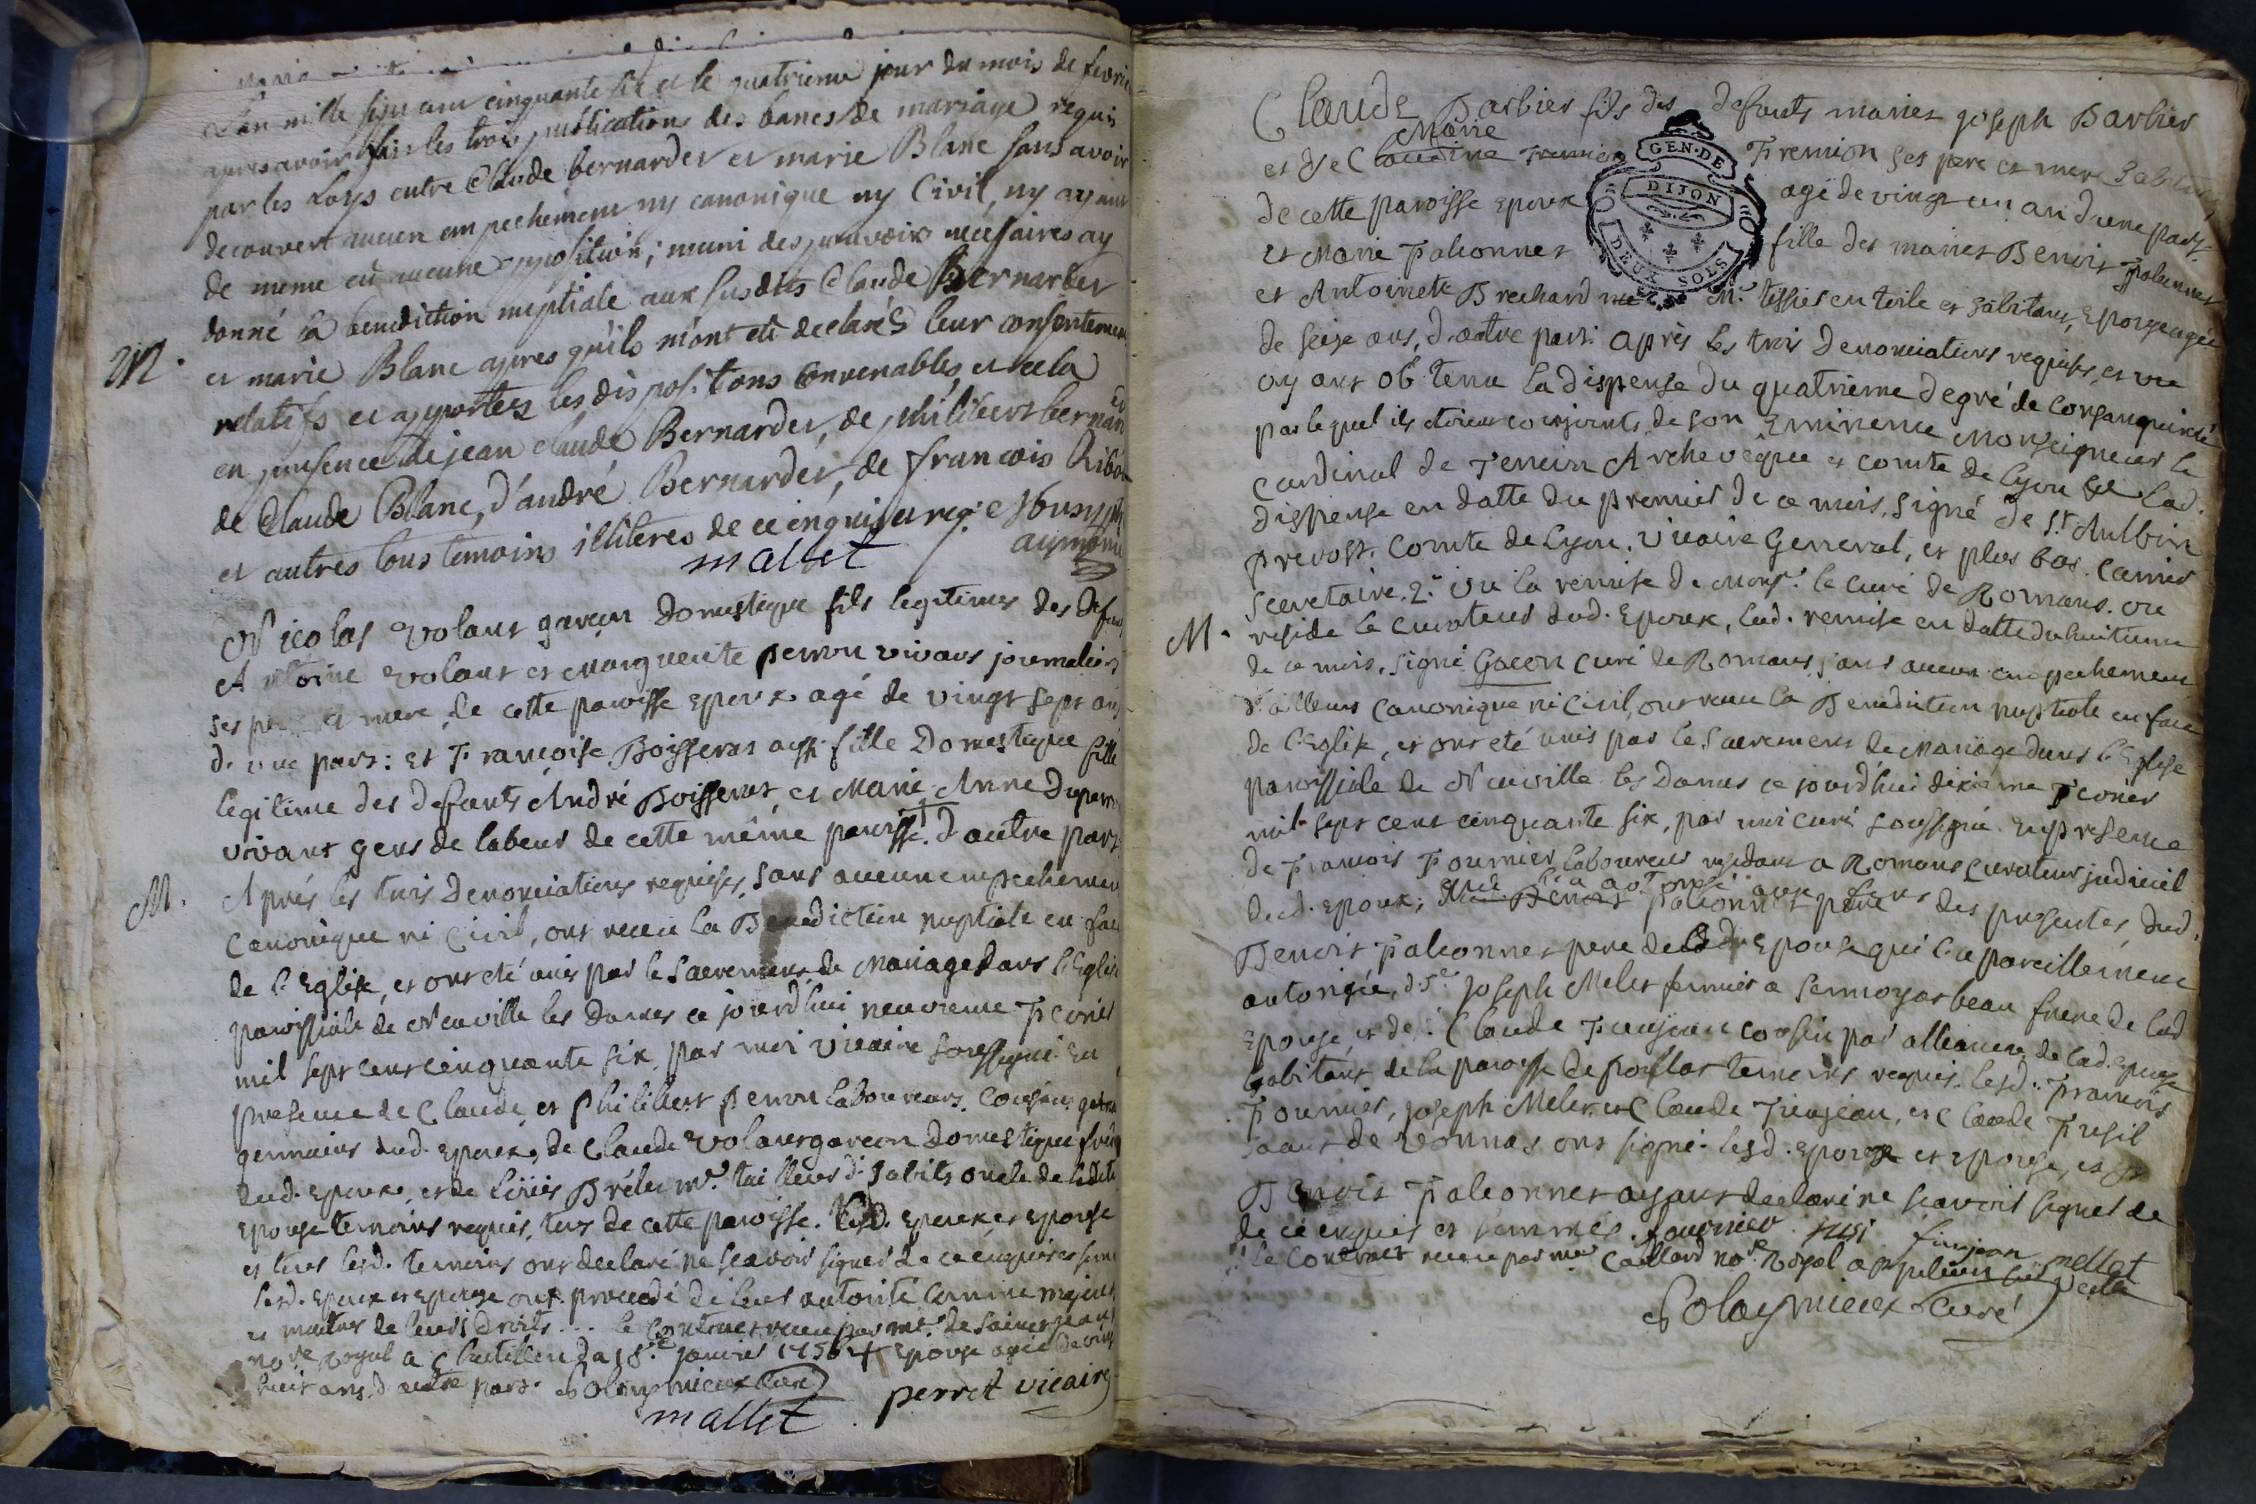 L'an mille sept cent cinquante six et le quatrieme jour du mois de fevrier
apres avoir fait les trois publications des bancs de mariage requis
par les Loys entre Claude bernarder et marie Blanc sans avoir
decouvert aucun empechement ny canonique ny Civil, ny ayant
de meme eü aucune opposition; muni des pouvoirs necessaires ay
donné la benediction nuptiale aux susdits Claude Bernarder
et marie Blanc apres qu'ils m'ont eté declarés leur consentement
relatifs et apportez les dispositions convenables, et cela
en presence de jean claude Bernarder, de philibert bernar
de Claude Blanc, d'andré Bernarder, de francois Ribou
et autres tous temoins illiteres de ce enquis et req.
mallet
Nicolas Volant garçon Domestique fils legitimes des def
Antoine Volant et Marguerite perron vivans journaliers
ses pere et mere, de cette paroisse Epoux agé de vingt sept ans
d'une part: et Francoise Boisseras aussi fille Domestique fille
legitime des defunts André Boisseras, et Marie Anne Duper
vivans gens de labeur de cette même paroisse + d'autre part.
M.
M. Après les trois Denonciations requises, sans aucun empechement
Canonique ni Civil, ont receu la Benediction nuptiale en face
de l'Eglise, et ont eté unis par le Sacrement de Mariage dans l'Eglise
paroissiale de Neuville les Dames ce jourd'hui neuvieme Fevrier
mil sept cent cinquante six, par moi Vicaire soussigné En
presence de Claude et Philibert perron laboureurs. Cousins
germains dud. Epoux, de Claude Volant garcon Domestique frere
dud. Epoux, et de Loüis Prélu mre. tailleur d'habits oncle de ladite
Epouse temoins requis, tous de cette paroisse. Lesd. Epoux et Epouse
et tous lesd. temoins ont declaré ne sçavoir signer de ce enquis et
lesd. Epoux et Epouse ont procedé de leur autorité comme majeurs
et maitres de leurs Droits... le Contract receu par me. de Saint jean
nore Royal a Chatillon Da 18e. janvier 1756 + Epouse agée de vingt
huit ans, d'autre part. Solaymieux Curé
mallet perret vicaire
Claude Barbier fils des defunts mariez joseph Barbier
et de Claudine Marie Fremion Ses pere et mere habitans
GEN. DE
DIJON
DEUX SOLS
de cette paroisse Epoux agé de vingt un an d'une part,
et Marie Falconnet fille des mariez Benoit Falconnet
et Antoinete Brechard Mre. tissier en toile et habitans, Epouse agée
de seize ans, d'autre part. Après les trois Denonciations requises, et vu
ayant obtenu la dispense du quatrieme degré de Consanguinité
par lequel ils etoient conjoints, de Son Eminence Monseigneur le
Cardinal de Tencin Archevêque et comte de Lyon Lad.
Dispense en datte du premier de ce mois, signé De St. Aulbin
prevost. Comte de Lyon. Vicaire General, et plus bas. Carrier
Secretaire. 2o. vu la remise de Monsr. le curé de Romans. ou
M. reside le curateur dud. Epoux, lad. remise en datte du huitieme
de ce mois, signé Gacon Curé de Romans, sans aucun empechement
d'ailleurs Canonique ni Civil, ont receu la Benediction nuptiale en face
de l'Eglise, et ont eté unis par le Sacrement de Mariage dans l'Eglise
paroissiale de Neuville les Dames ce jourd'hui dixieme Fevrier
mil sept cent cinquante six, par moi curé soussigné. En presence
de Francois Fournier, laboureur residant a Romans Curateur judiciel
dud. Epoux, qui l'a autorisé aux fins des presentes, dud.
Benoit Falconnet pere de lad. Epouse qui l'a pareillement
autorisée, de Sr. joseph Melet fermier a Sermoyas beau frere de lad
Epouse, et de Claude Finjean cousin par alliance de lad. epouse
habitans de la paroisse de temoins requis. Lesd. Francois
Fournier, joseph Melet, et Claude Finjean, et Claude Fusil
de Vonnas ont signé. lesd. Epoux et epouse, et
Benoit Falconnet ayant declaré ne sçavoir signer de
de ce enquis et sommés. fournier fusi finjean mellet
le Contract receu par me. Caillard nore. Royal
Solaymieux Curé